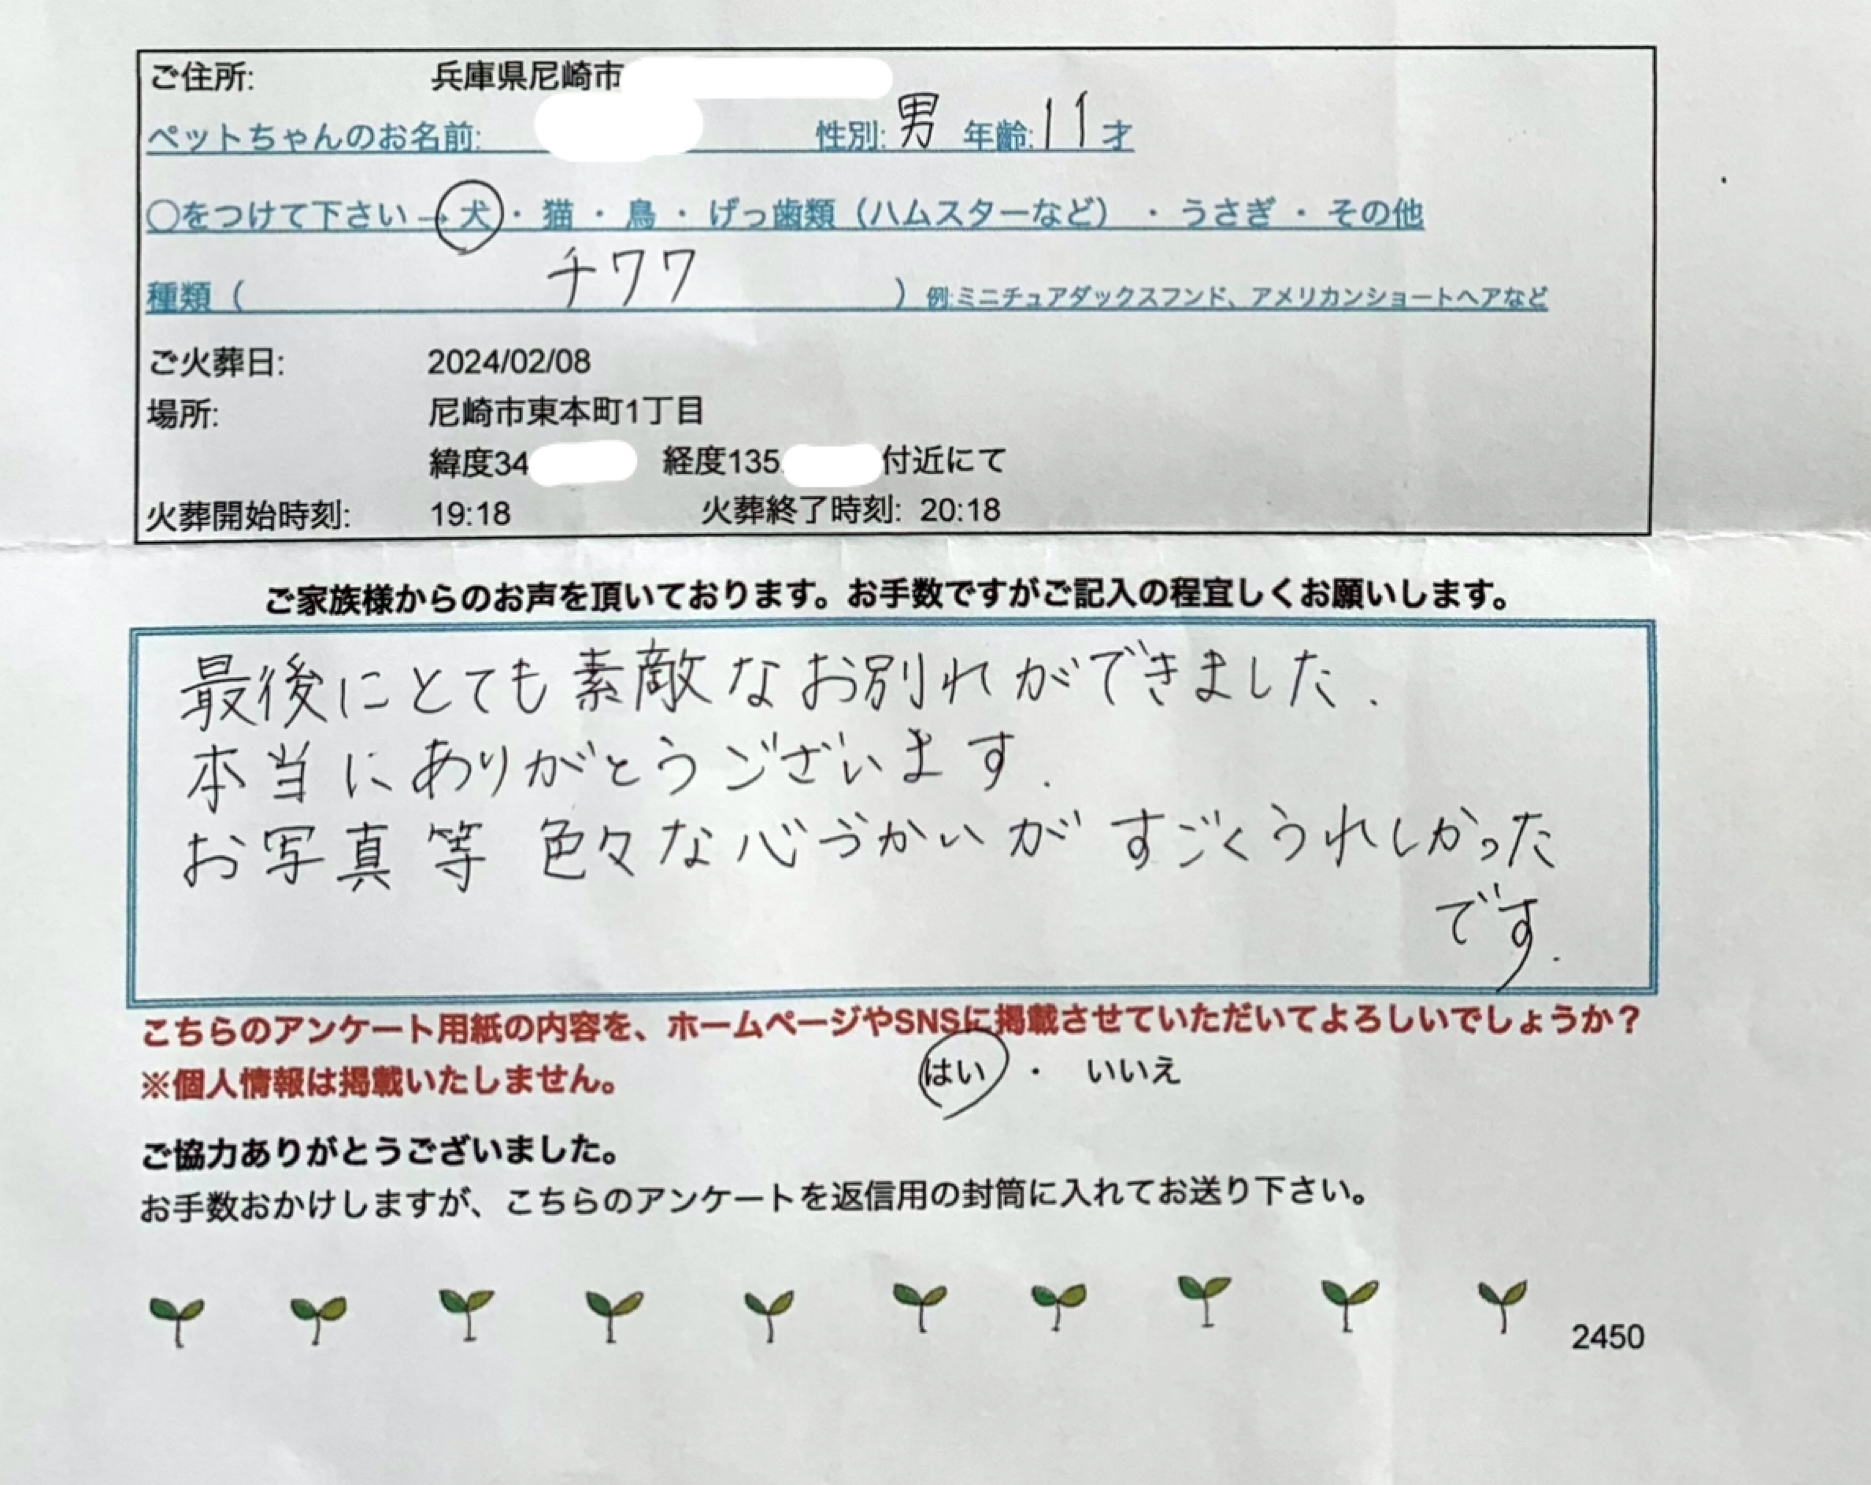 ご住所: 兵庫県尼崎市
ペットちゃんのお名前: 性別: 男 年齢: 11才
○をつけて下さい→犬・猫・鳥・げっ歯類（ハムスターなど）・うさぎ・その他
種類（ チワワ ）例:ミニチュアダックスフンド、アメリカンショートヘアなど
ご火葬日: 2024/02/08
場所: 尼崎市東本町1丁目
緯度34 経度135. 付近にて
火葬開始時刻: 19:18 火葬終了時刻: 20:18
ご家族様からのお声を頂いております。お手数ですがご記入の程宜しくお願いします。
最後にとても素敵なお別れができました.
本当にありがとうございます.
お写真等 色々な心づかいが すごくうれしかった
です.
こちらのアンケート用紙の内容を、ホームページやSNSに掲載させていただいてよろしいでしょうか？
※個人情報は掲載いたしません。 はい ・ いいえ
ご協力ありがとうございました。
お手数おかけしますが、こちらのアンケートを返信用の封筒に入れてお送り下さい。
2450